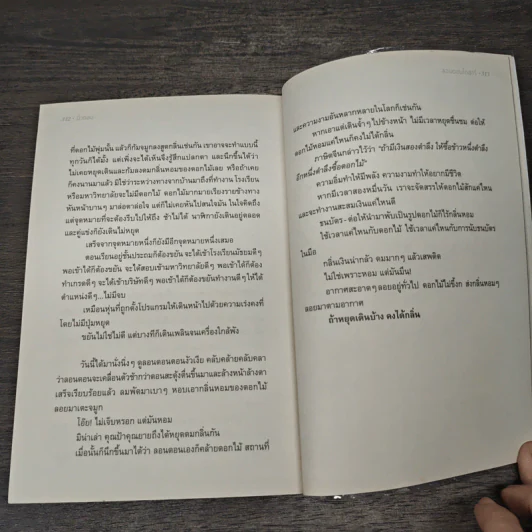 ที่ดอกไม้พุ่มนั้น แล้วก็ก้มจมูกลงสูดกลิ่นเช่นกัน เขาอาจจะทำแบบนี้
ทุกวันก็ได้มั้ง แต่เพิ่งจะได้เห็นจึงรู้สึกแปลกตา และนึกขึ้นได้ว่า
ไม่เคยหยุดเดินและก้มลงดมกลิ่นหอมของดอกไม้เลย หรือถ้าเคย
ก็คงนานมาแล้ว มิใช่ว่าระหว่างทางจากบ้านมาถึงที่ทำงาน โรงเรียน
หรือมหาวิทยาลัยจะไม่มีดอกไม้ ดอกไม้มากมายเรียงรายข้างทาง
หันหน้าบานๆ มาล่อตาล่อใจ แต่ก็ไม่เคยหันไปสนใจมัน ในใจคิดถึง
แต่จุดหมายที่จะต้องรีบไปให้ถึง ช้าไม่ได้ นาฬิกายังเดินอยู่ตลอด
และคู่แข่งก็ยังเดินไม่หยุด
เสร็จจากจุดหมายหนึ่งก็ยังมีอีกจุดหมายหนึ่งเสมอ
ตอนเรียนอยู่ชั้นประถมก็ต้องขยัน จะได้เข้าโรงเรียนมัธยมดีๆ
พอเข้าได้ก็ต้องขยัน จะได้สอบเข้ามหาวิทยาลัยดีๆ พอเข้าได้ก็ต้อง
ทำเกรดดีๆ จะได้เข้าบริษัทดีๆ พอเข้าได้ก็ต้องขยันทำงานดีๆ ให้ได้
ตำแหน่งดีๆ...ไม่มีจบ
เหมือนหุ่นที่ถูกตั้งโปรแกรมให้เดินหน้าไปด้วยความเร่งคงที่
โดยไม่มีปุ่มหยุด
ขยันไม่ใช่ไม่ดี แต่บางทีก็เดินเพลินจนเครื่องใกล้พัง
วันนี้ได้มานั่งนิ่งๆ ดูลอนตอนตอนงัวเงีย คลับคล้ายคลับคลา
ว่าลอนดอนจะเคลื่อนตัวช้ากว่าตอนสะดุ้งตื่นขึ้นมาและล้างหน้าล้างตา
เสร็จเรียบร้อยแล้ว ลมพัดมาเบาๆ หอบเอากลิ่นหอมของดอกไม้
ลอยมาเตะจมูก
โอ๊ย! ไม่เจ็บหรอก แต่มันหอม
มิน่าเล่า คุณป้าคุณยายถึงได้หยุดดมกลิ่นกัน
เมื่อนั้นก็นึกขึ้นมาได้ว่า ลอนดอนเองก็คล้ายดอกไม้ สถานที่
และความงามอันหลากหลายในโลกก็เช่นกัน
หากเอาแต่เดินจ้ำๆ ไปข้างหน้า ไม่มีเวลาหยุดชื่นชม ต่อให้
ดอกไม้หอมแค่ไหนก็คงไม่ได้กลิ่น
ภาษิตจีนกล่าวไว้ว่า "ถ้ามีเงินสองตำลึง ให้ซื้อข้าวหนึ่งตำลึง
อีกหนึ่งตำลึงซื้อดอกไม้"
ความอิ่มทำให้มีพลัง ความงามทำให้อยากมีชีวิต
หากมีเวลาสองหมื่นวัน เราจะจัดสรรให้ดอกไม้สักแค่ไหน
และจะทำงานสะสมเงินแค่ไหนดี
ธนบัตร-ต่อให้นำมาพับเป็นรูปดอกไม้ก็ไร้กลิ่นหอม
ใช้เวลาแค่ไหนกับดอกไม้ ใช้เวลาแค่ไหนกับการนับธนบัตร
ในมือ
กลิ่นเงินน่ากลัว ดมมากๆ แล้วเสพติด
ไม่ใช่เพราะหอม แต่มันมึน!
อากาศสะอาดๆ ลอยอยู่ทั่วไป ดอกไม้ไม่ขี้งก ส่งกลิ่นหอมๆ
ลอยมาตามอากาศ
ถ้าหยุดเดินบ้าง คงได้กลิ่น